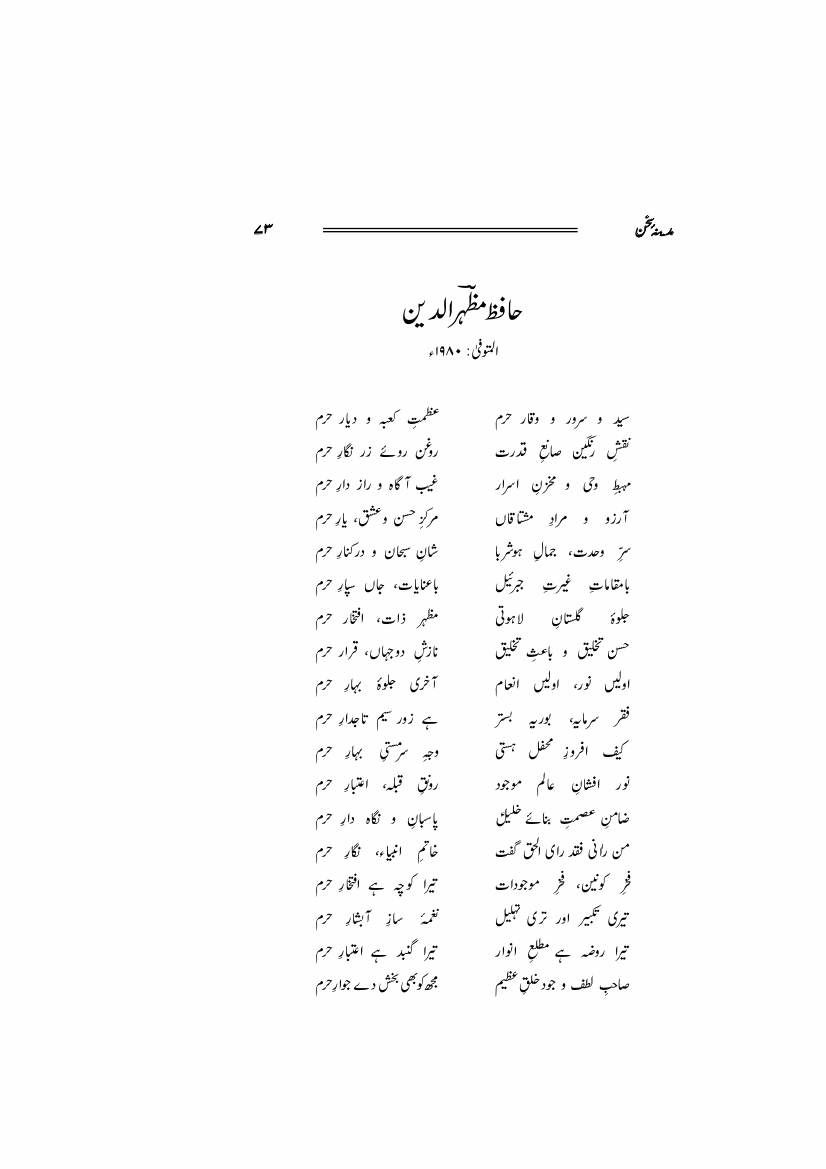 مدینۂ سخن ۷۳
حافظ مظہر الدینؒ
المتوفیٰ: ۱۹۸۰ء
سید و سرور و وقار حرم عظمتِ کعبہ و دیار حرم
نقشِ رنگین صانعِ قدرت روغن روئے زر نگارِ حرم
مہبطِ وحی و مخزنِ اسرار غیب آگاہ و راز دارِ حرم
آرزو و مرادِ مشتاقاں مرکزِ حسن وعشق، یارِ حرم
سرِّ وحدت، جمالِ ہوشربا شانِ سبحان و درکنارِ حرم
بامقاماتِ غیرتِ جبرئیل باعنایات، جاں سپارِ حرم
جلوۂ گلستانِ لاہوتی مظہر ذات، افتخار حرم
حسن تخلیق و باعثِ تخلیق نازشِ دوجہاں، قرار حرم
اولیں نور، اولیں انعام آخری جلوۂ بہارِ حرم
فقر سرمایہ، بوریہ بستر ہے زور سیم تاجدارِ حرم
کیف افروزِ محفل ہستی وجہِ سرمستیِ بہارِ حرم
نور افشانِ عالم موجود رونقِ قبلہ، اعتبارِ حرم
ضامنِ عصمتِ بنائے خلیلؑ پاسبانِ و نگاہ دارِ حرم
من رانی فقد رای الحق گفت خاتمِ انبیاء، نگارِ حرم
فخرِ کونین، فخرِ موجودات تیرا کوچہ ہے افتخارِ حرم
تیری تکبیر اور تری تہلیل نغمۂ سازِ آبشارِ حرم
تیرا روضہ ہے مطلعِ انوار تیرا گنبد ہے اعتبارِ حرم
صاحبِ لطف و جود خلقِ عظیم مجھ کو بھی بخش دے جوارِ حرم